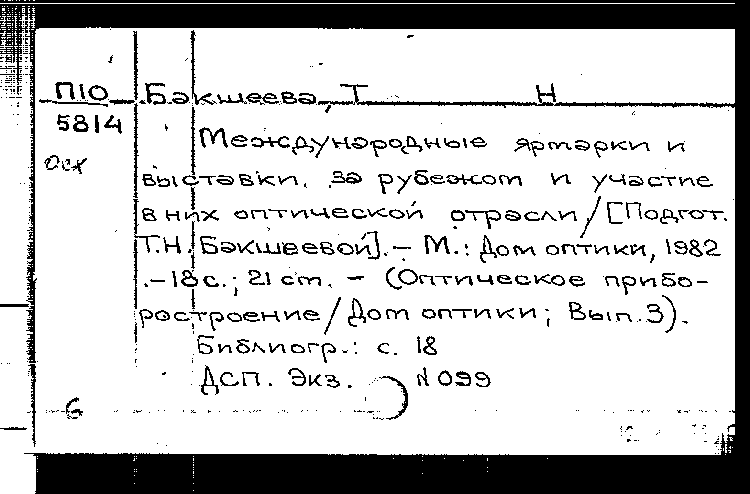 П10 Бакшеева, Т Н
5814
осх
Международные ярмарки и
выставки за рубежом и участие
в них оптической отрасли / [Подгот.
Т.Н. Бакшеевой]. – М.: Дом оптики, 1982
. – 18 с.; 21 см. – (Оптическое прибо-
ростроение / Дом оптики; Вып. 3).
Библиогр.: с. 18
ДСП. Экз. N 099
6